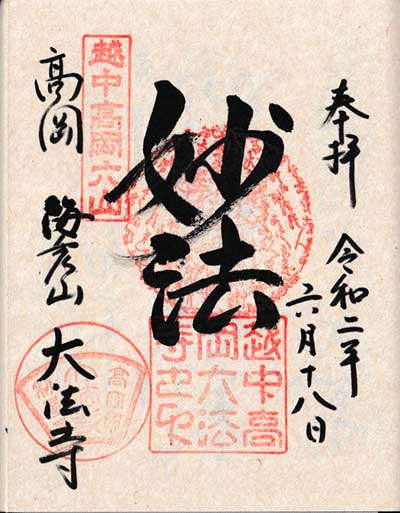 奉拝
令和二年
六月十八日
妙法
越中高
岡大法
寺之印
越中高岡六山
高岡
海秀山
大法寺